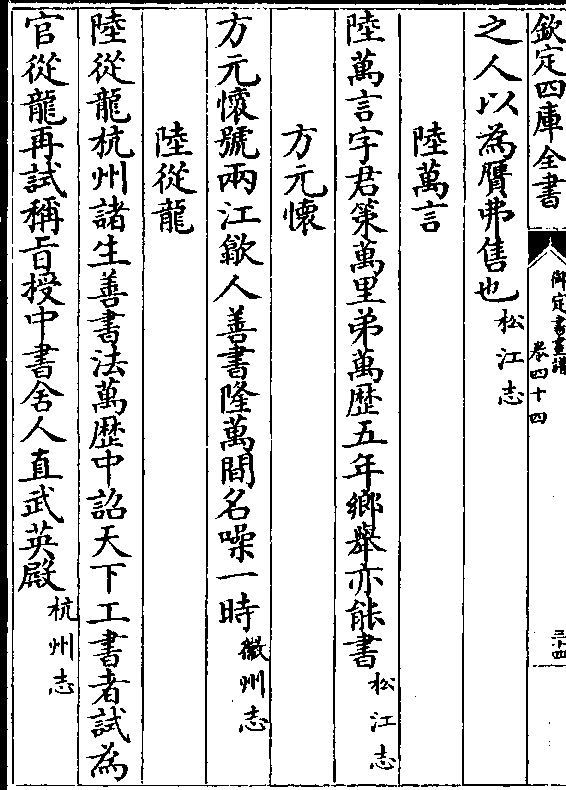 欽定四庫全書
御定書畫譜
卷四十四
三十四
之人以為贋弗售也松江志
陸萬言
陸萬言字君策萬里弟萬歴五年鄉舉亦能書松江志
方元懷
方元懷號兩江歙人善書隆萬間名噪一時徽州志
陸從龍
陸從龍杭州諸生善書法萬歴中詔天下工書者試為
官從龍再試稱旨授中書舍人直武英殿杭州志